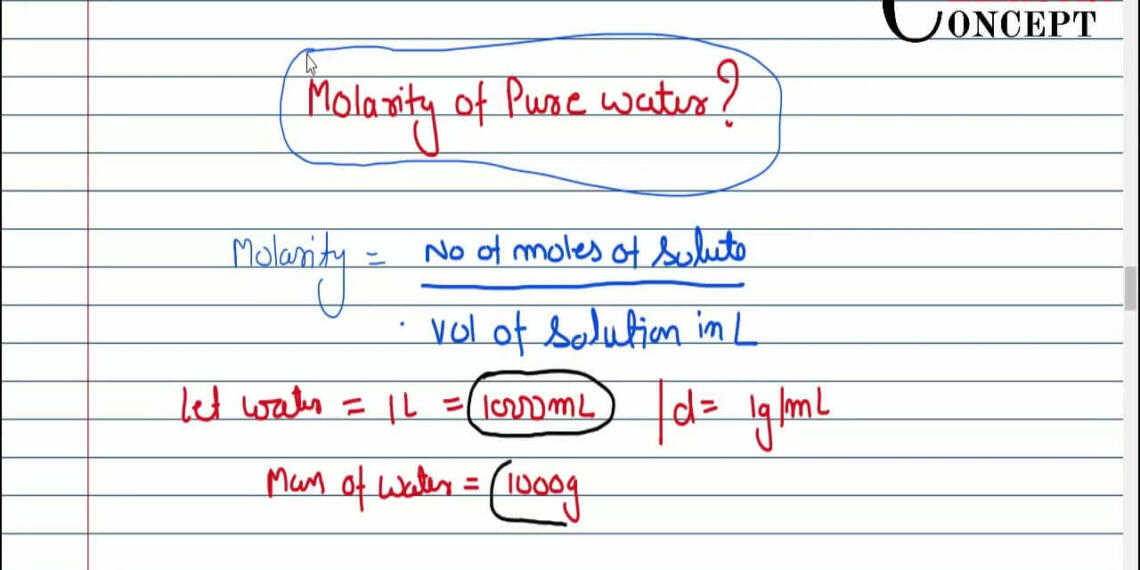 CONCEPT
Molarity of Pure water?
Molarity = No of moles of solute
vol of solution in L
let water = 1L = 1000mL | d = 1g/mL
Mass of water = 1000g